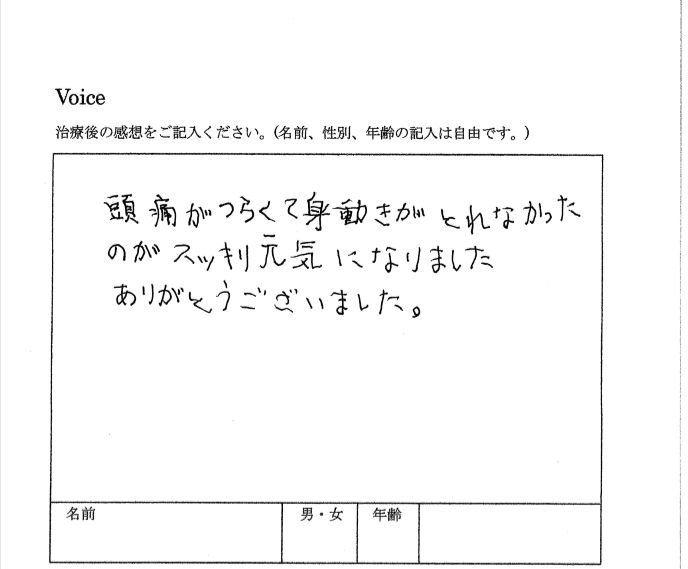 Voice
治療後の感想をご記入ください。(名前、性別、年齢の記入は自由です。)
頭痛がつらくて身動きがとれなかった
のがスッキリ元気になりました
ありがとうございました。
名前 男・女 年齢